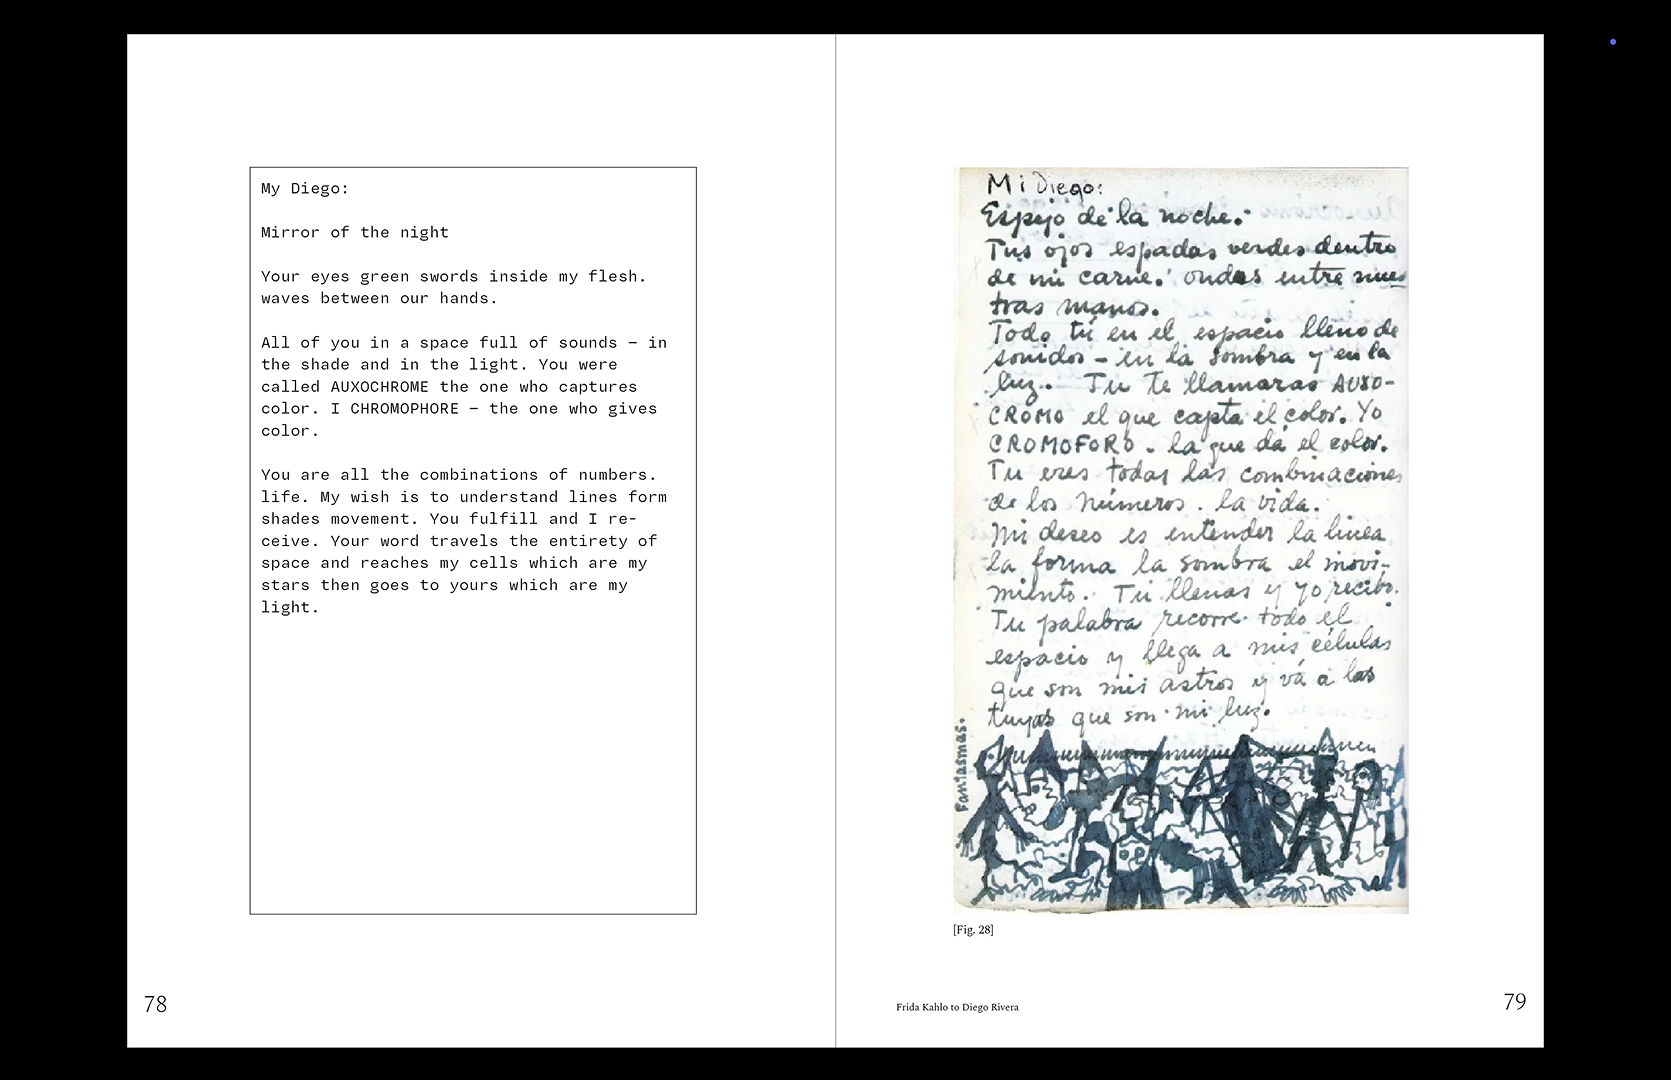 My Diego:
Mirror of the night
Your eyes green swords inside my flesh.
waves between our hands.
All of you in a space full of sounds – in
the shade and in the light. You were
called AUXOCHROME the one who captures
color. I CHROMOPHORE – the one who gives
color.
You are all the combinations of numbers.
life. My wish is to understand lines form
shades movement. You fulfill and I re-
ceive. Your word travels the entirety of
space and reaches my cells which are my
stars then goes to yours which are my
light.
78
Mi Diego:
Espejo de la noche.
Tus ojos espadas verdes dentro
de mi carne. ondas entre nues
tras manos.
Todo tú en el espacio lleno de
sonidos – en la sombra y en la
luz. Tu te llamaras AUXO-
CROMO el que capta el color. Yo
CROMOFORO - la que dá el color.
Tu eres todas las combinaciones
de los números. la vida.
Mi deseo es entender la linea
la forma la sombra el movi-
miento. Tu llenas y yo recibo.
Tu palabra recorre todo el
espacio y llega a mis células
que son mis astros y vá a las
tuyas que son mi luz.
Fantasmas.
[Fig. 28]
Frida Kahlo to Diego Rivera
79